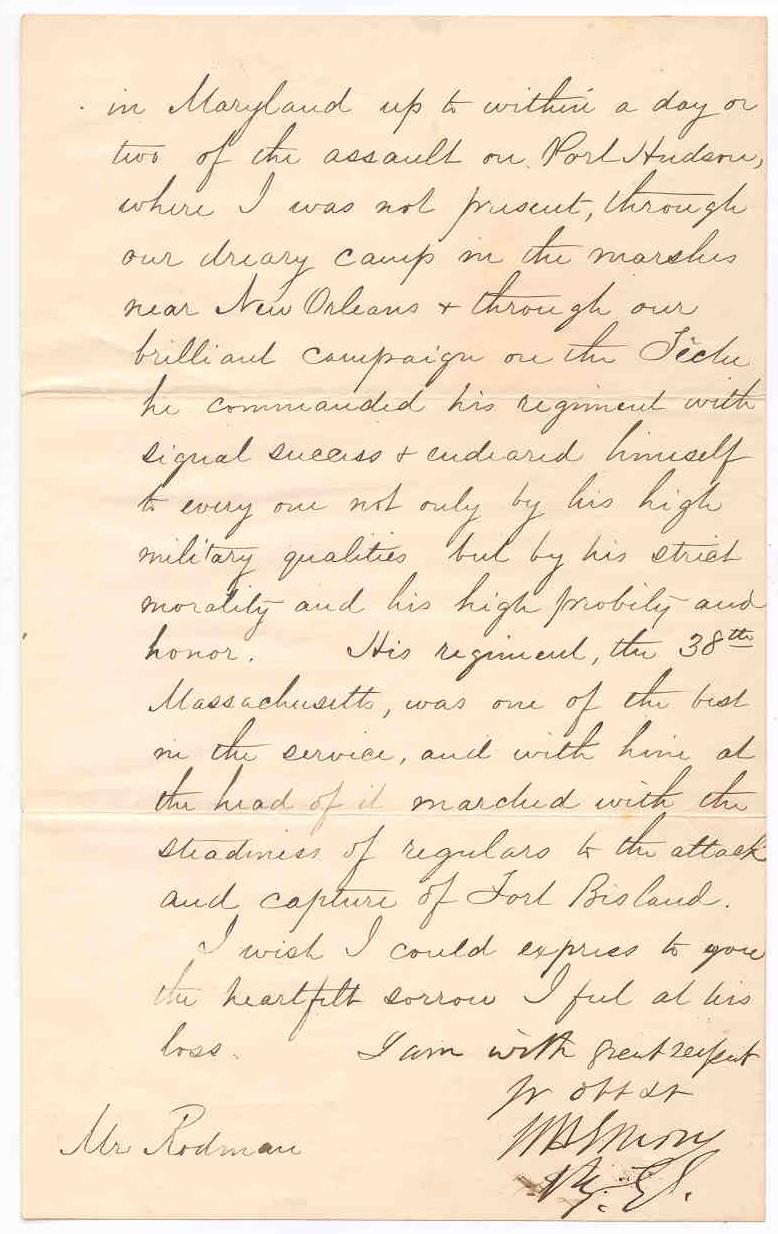 in Maryland up to within a day or
two of the assault on Port Hudson,
where I was not present, through
our dreary camp in the marshes
near New Orleans + through our
brilliant campaign on the Têche
he commanded his regiment with
signal success + endeared himself
to every one not only by his high
military qualities but by his strict
morality and his high probity and
honor. His regiment, the 38th
Massachusetts, was one of the best
in the service, and with him at
the head of it marched with the
steadiness of regulars to the attack
and capture of Fort Bisland.
I wish I could express to you
the heartfelt sorrow I feel at his
loss. I am with great respect
Yr obt st
Mr Rodman